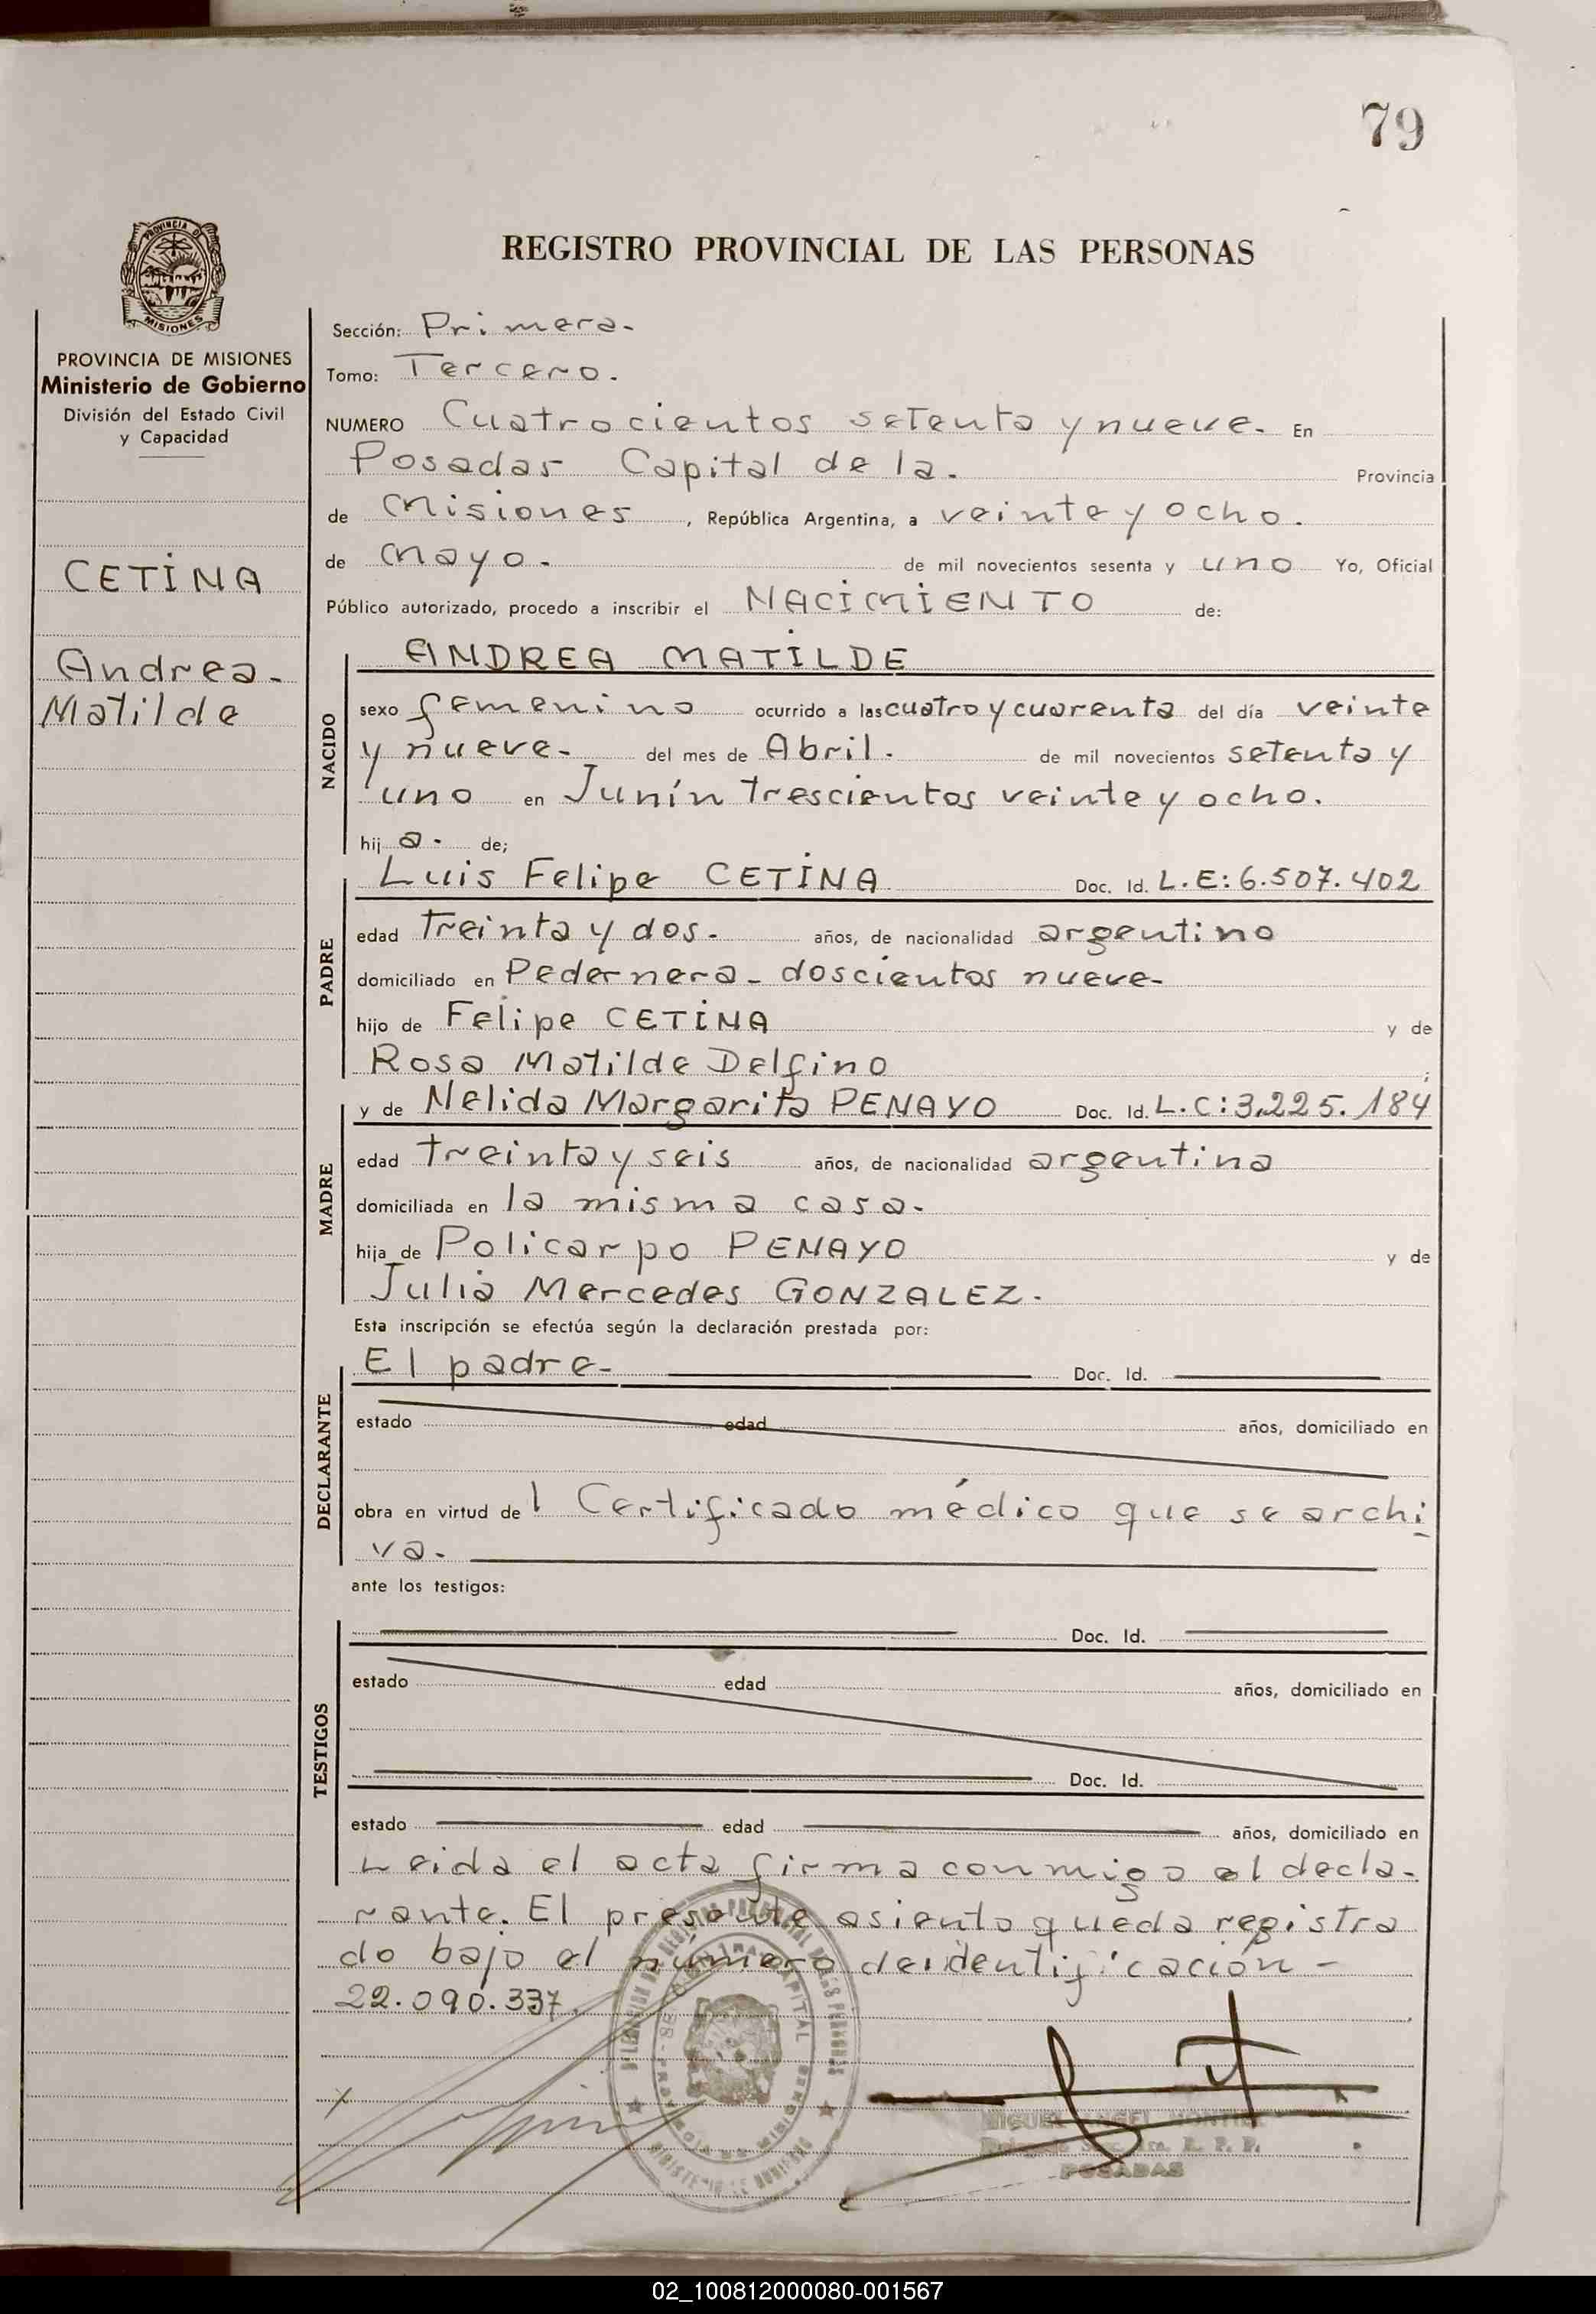 79
REGISTRO PROVINCIAL DE LAS PERSONAS
PROVINCIA DE
MISIONES
PROVINCIA DE MISIONES
Ministerio de Gobierno
División del Estado Civil
y Capacidad
CETINA
Andrea-
Matilde
Sección: Primera-
Tomo: Tercero.
NUMERO Cuatrocientos setenta y nueve- En
Posadas Capital de la- Provincia
de Misiones, República Argentina, a veinte y ocho.
de Mayo- de mil novecientos sesenta y uno Yo, Oficial
Público autorizado, procedo a inscribir el NACIMIENTO de:
NACIDO
ANDREA MATILDE
sexo femenino ocurrido a las cuatro y cuarenta del día veinte
y nueve- del mes de Abril- de mil novecientos setenta y
uno en Junín Trescientos veinte y ocho.
hij a- de;
PADRE
Luis Felipe CETINA Doc. Id. L.E: 6.507.402
edad treinta y dos- años, de nacionalidad argentino
domiciliado en Pedernera- doscientos nueve-
hijo de Felipe CETINA y de
Rosa Matilde Delfino ;
MADRE
y de Nelida Margarita PENAYO Doc. Id. L.C: 3.225.184
edad treinta y seis años, de nacionalidad argentina
domiciliada en la misma casa-
hija de Policarpo PENAYO y de
Julia Mercedes GONZALEZ-
Esta inscripción se efectúa según la declaración prestada por:
DECLARANTE
El padre- Doc. Id.
estado edad años, domiciliado en
obra en virtud del Certificado médico que se archi
va-
ante los testigos:
TESTIGOS
Doc. Id.
estado edad años, domiciliado en
Doc. Id.
estado edad años, domiciliado en
Leida el acta firma conmigo el decla-
rante. El presente asiento queda registra
do bajo el número de identificación-
22.090.337.
MIGUEL ANGEL
R. P. P.
POSADAS
02_100812000080-001567